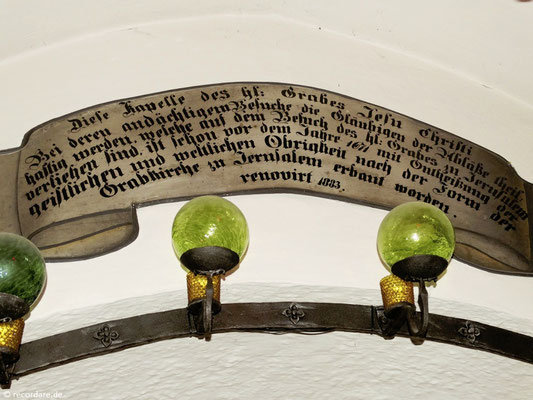 Diese Kapelle des hl: Grabes Jesu Christi
Bei deren andächtigem Besuche die Gläubigen der Ablaße theil-
haftig werden, welche auf dem Besuch des hl: Grabes zu Jerusalem
verliehen sind, ist schon vor dem Jahre 1671 mit Gutheißung der
geistlichen und weltlichen Obrigkeit nach der Form der
Grabkirche zu Jerusalem erbaut worden.
renovirt 1883.
© recordare.de